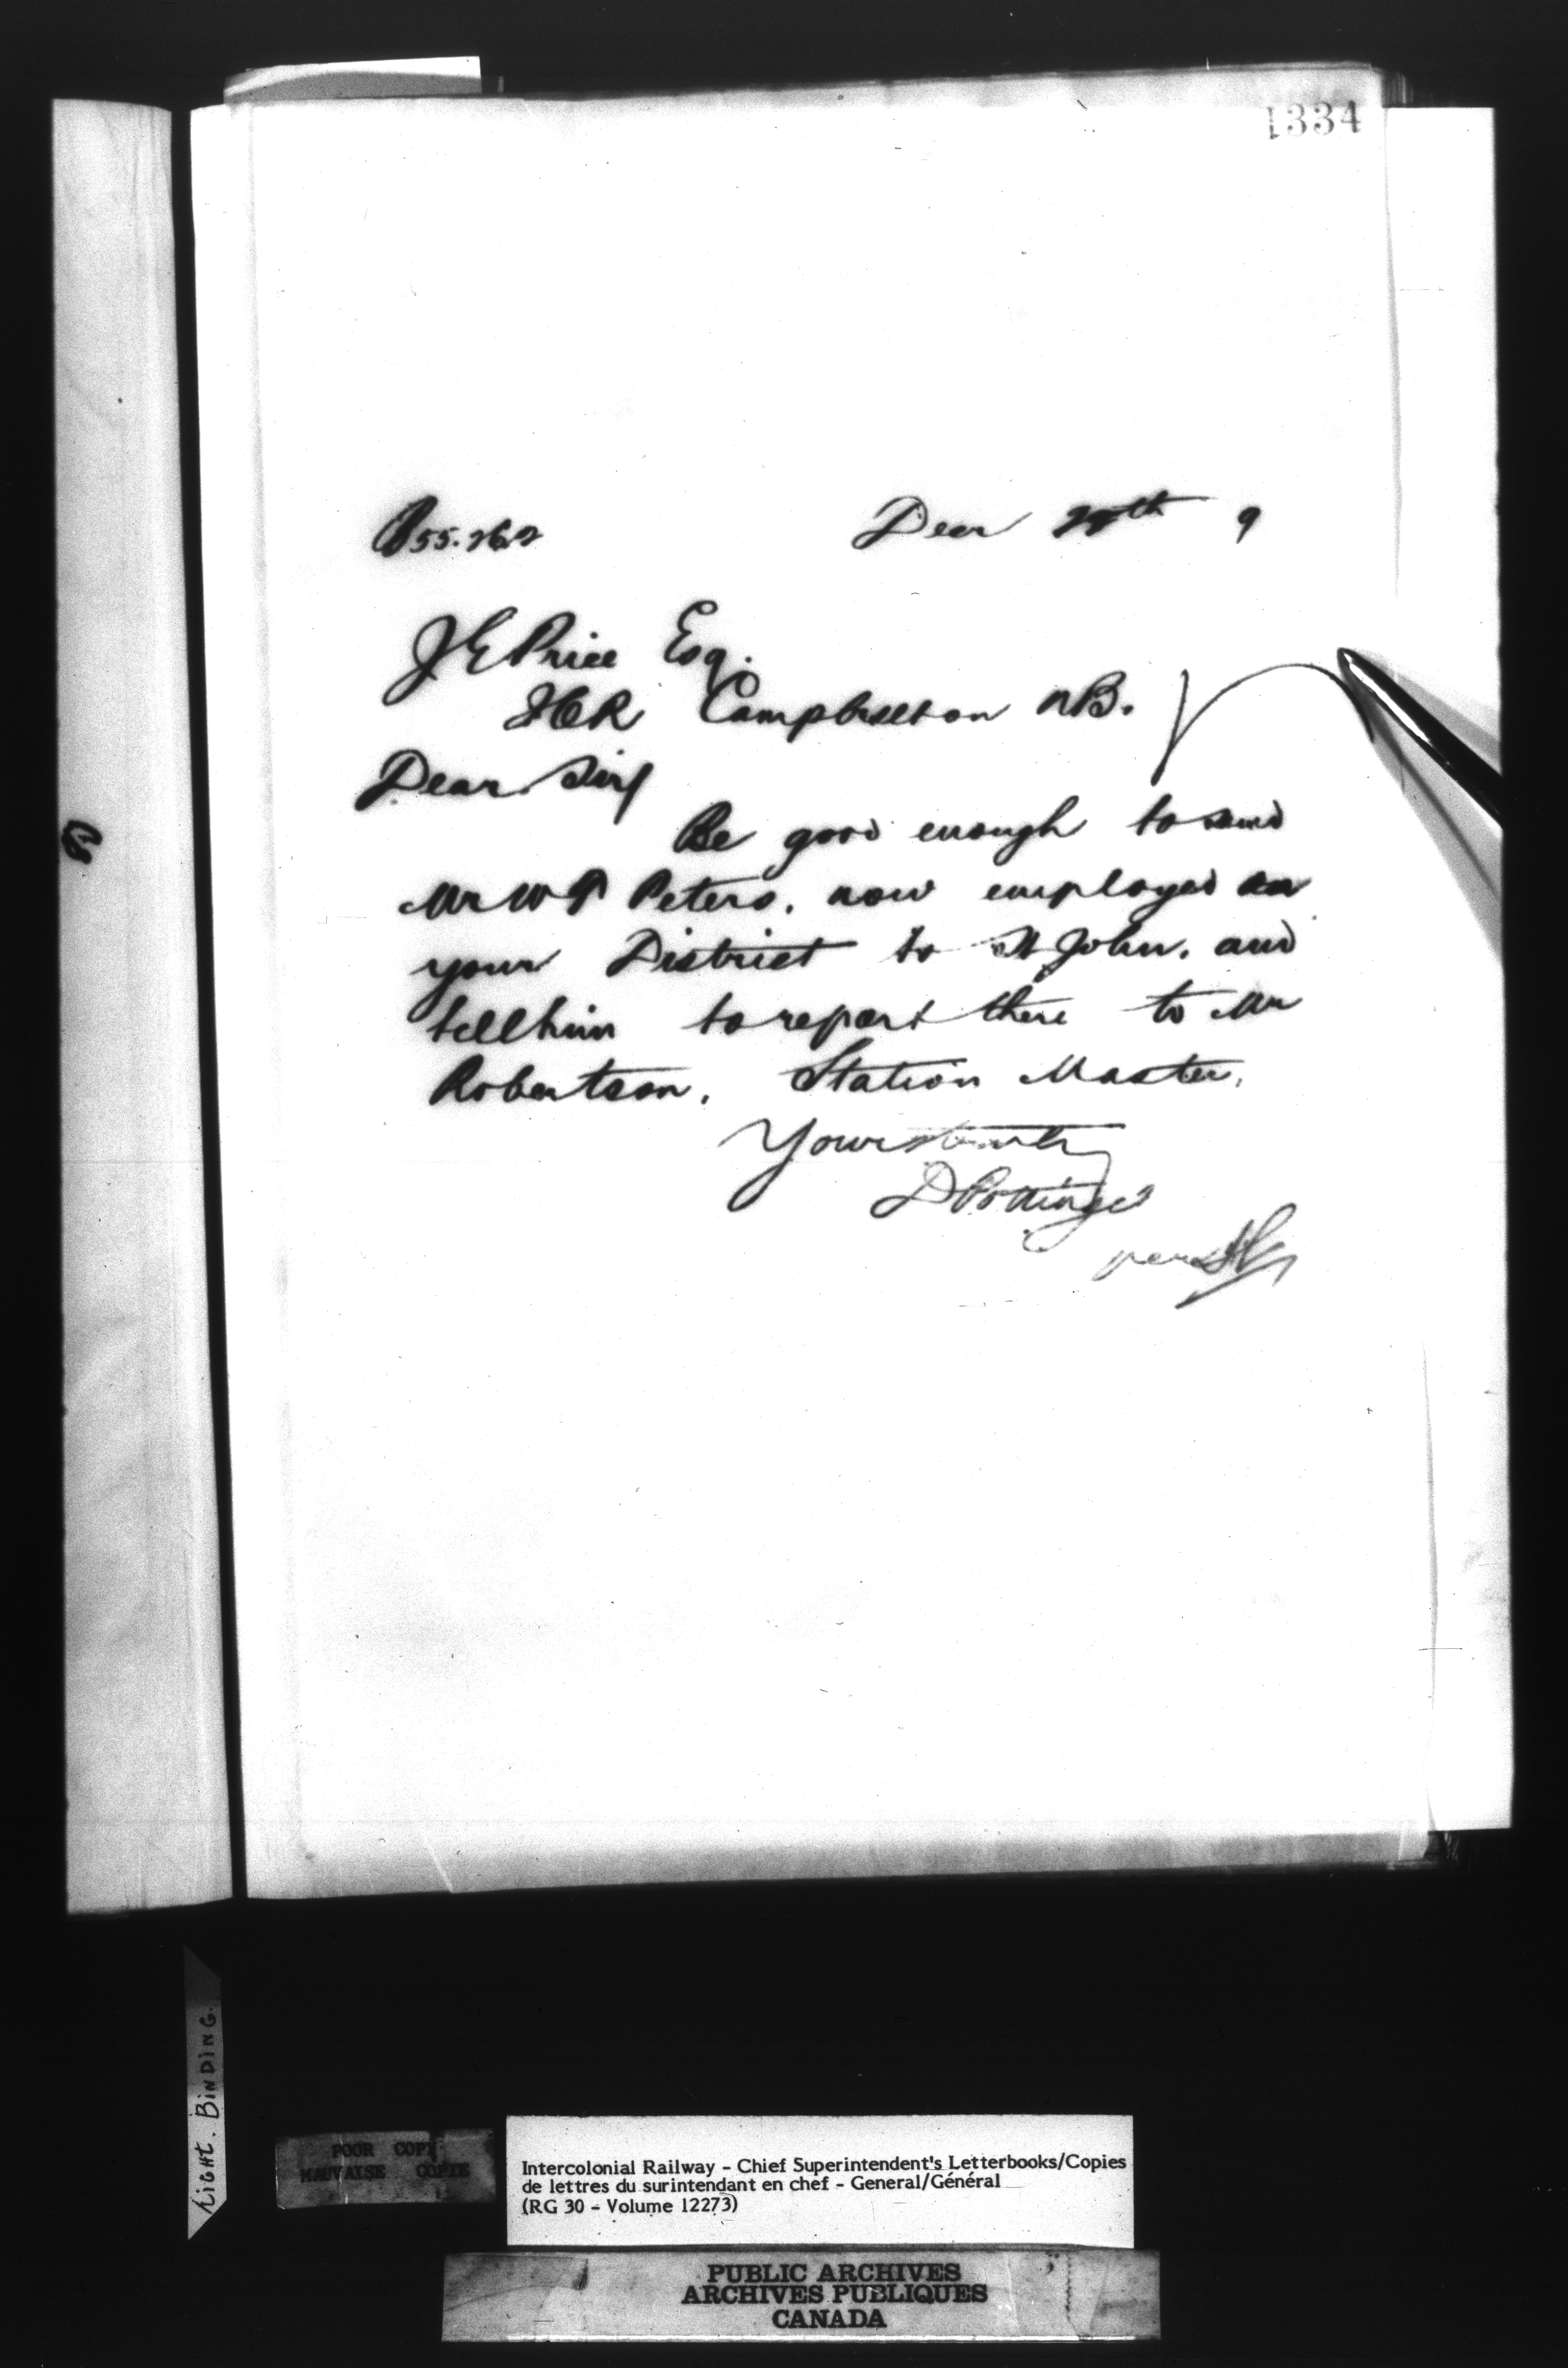 1334
P55.262 Decr 29th 9
J E Price Esq.
ICR Campbellton NB.
Dear Sir/
Be good enough to send
Mr W P Peters, now employed on
your District to St John, and
tell him to report there to Mr
Robertson, Station Master.
Yours truly
D Pottinger
per
Tight. BINDING.
POOR COPY
MAUVAISE COPIE
Intercolonial Railway - Chief Superintendent's Letterbooks/Copies
de lettres du surintendant en chef - General/Général
(RG 30 - Volume 12273)
PUBLIC ARCHIVES
ARCHIVES PUBLIQUES
CANADA